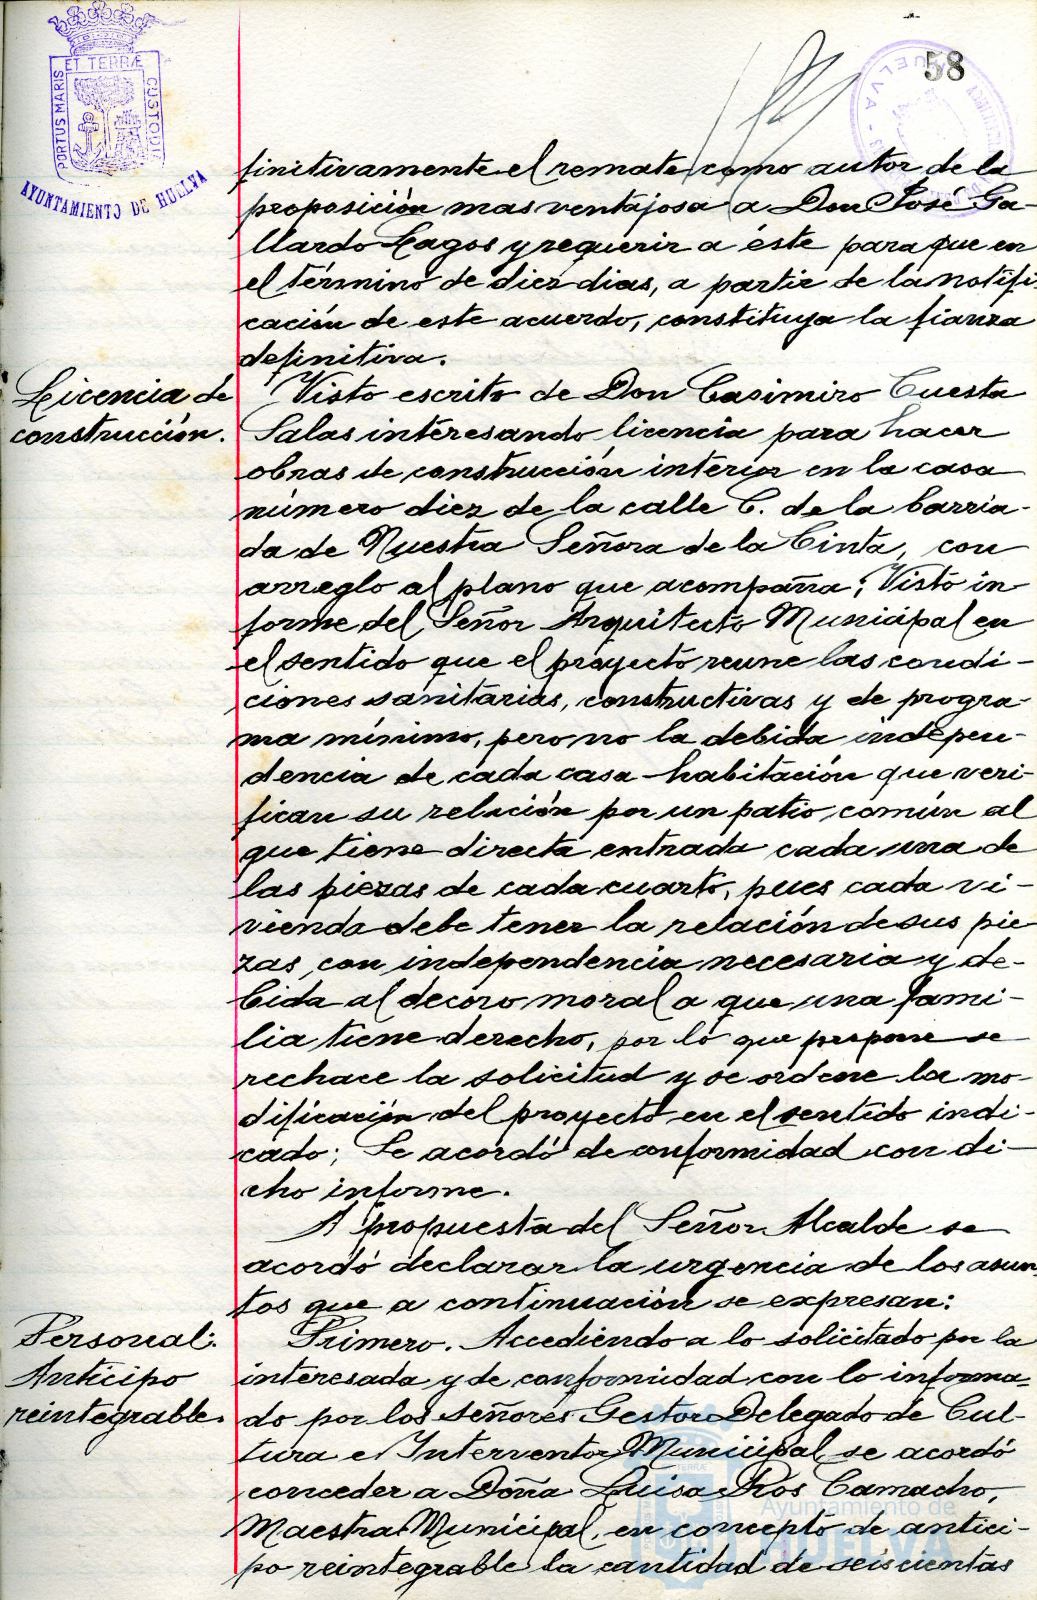 58
PORTUS MARIS
ET TERRÆ
CUSTODI
AYUNTAMIENTO DE HUELVA
HUELVA
finitivamente el remate como autor de la
proposición mas ventajosa a Don José Ga-
llardo Lagos y requerir a éste para que en
el término de diez dias, a partir de la notifi-
cación de este acuerdo, constituya la fianza
definitiva.
Licencia de
construcción.
Visto escrito de Don Casimiro Cuesta
Salas interesando licencia para hacer
obras de construcción interior en la casa
número diez de la calle C. de la barria-
da de Nuestra Señora de la Cinta, con
arreglo al plano que acompaña; Visto in-
forme del Señor Arquitecto Municipal en
el sentido que el proyecto reune las condi-
ciones sanitarias, constructivas y de progra-
ma mínimo, pero no la debida indepen-
dencia de cada casa-habitación que veri-
fican su relación por un patio común al
que tiene directa entrada cada una de
las piezas de cada cuarto, pues cada vi-
vienda debe tener la relación de sus pie
zas, con independencia necesaria y de-
bida al decoro moral a que una fami-
lia tiene derecho, por lo que propone se
rechace la solicitud y se ordene la mo-
dificación del proyecto en el sentido indi-
cado; Se acordó de conformidad con di-
cho informe.
A propuesta del Señor Alcalde se
acordó declarar la urgencia de los asun-
tos que a continuación se expresan:
Personal:
Anticipo
reintegrable.
Primero. Accediendo a lo solicitado por la
interesada y de conformidad con lo informa-
do por los señores Gestor Delegado de Cul-
tura e Interventor Municipal se acordó
conceder a Doña Luisa Ros Camacho,
Maestra Municipal, en concepto de antici-
po reintegrable la cantidad de seiscientas
Ayuntamiento de
HUELVA